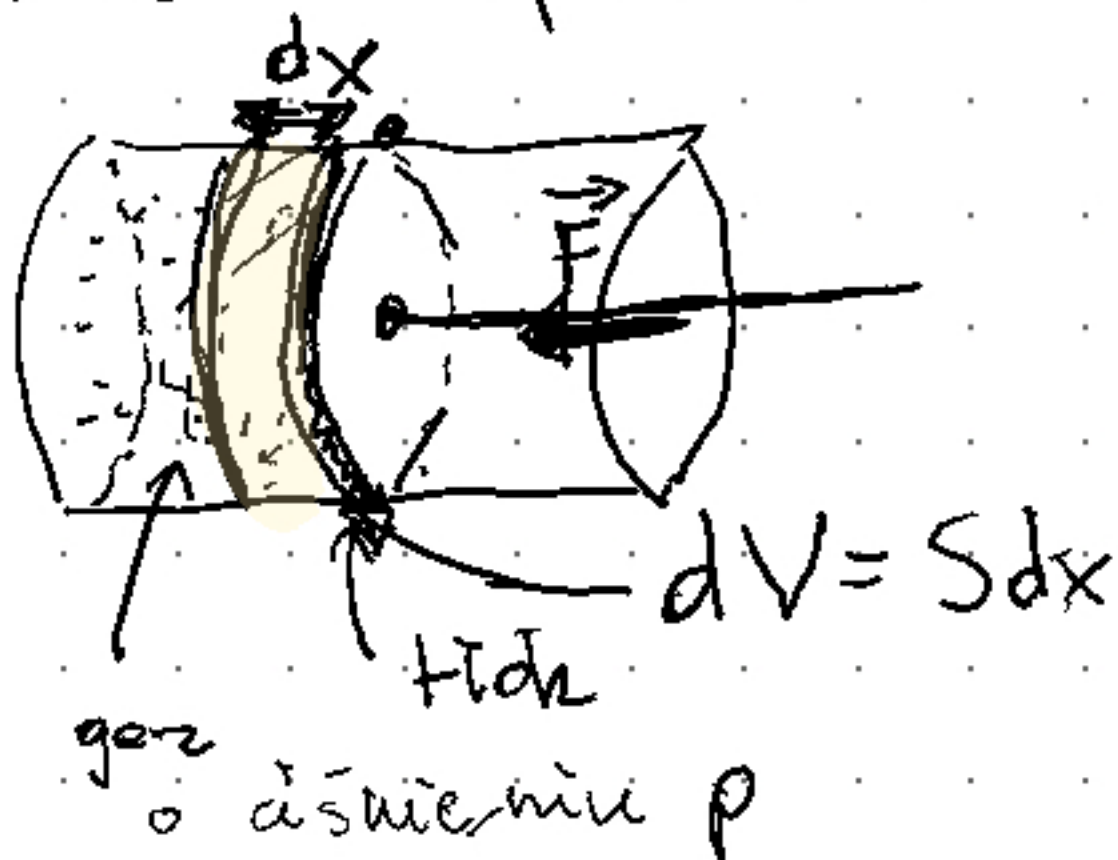 dx
F
dV = Sdx
tłok
gaz
o ciśnieniu p